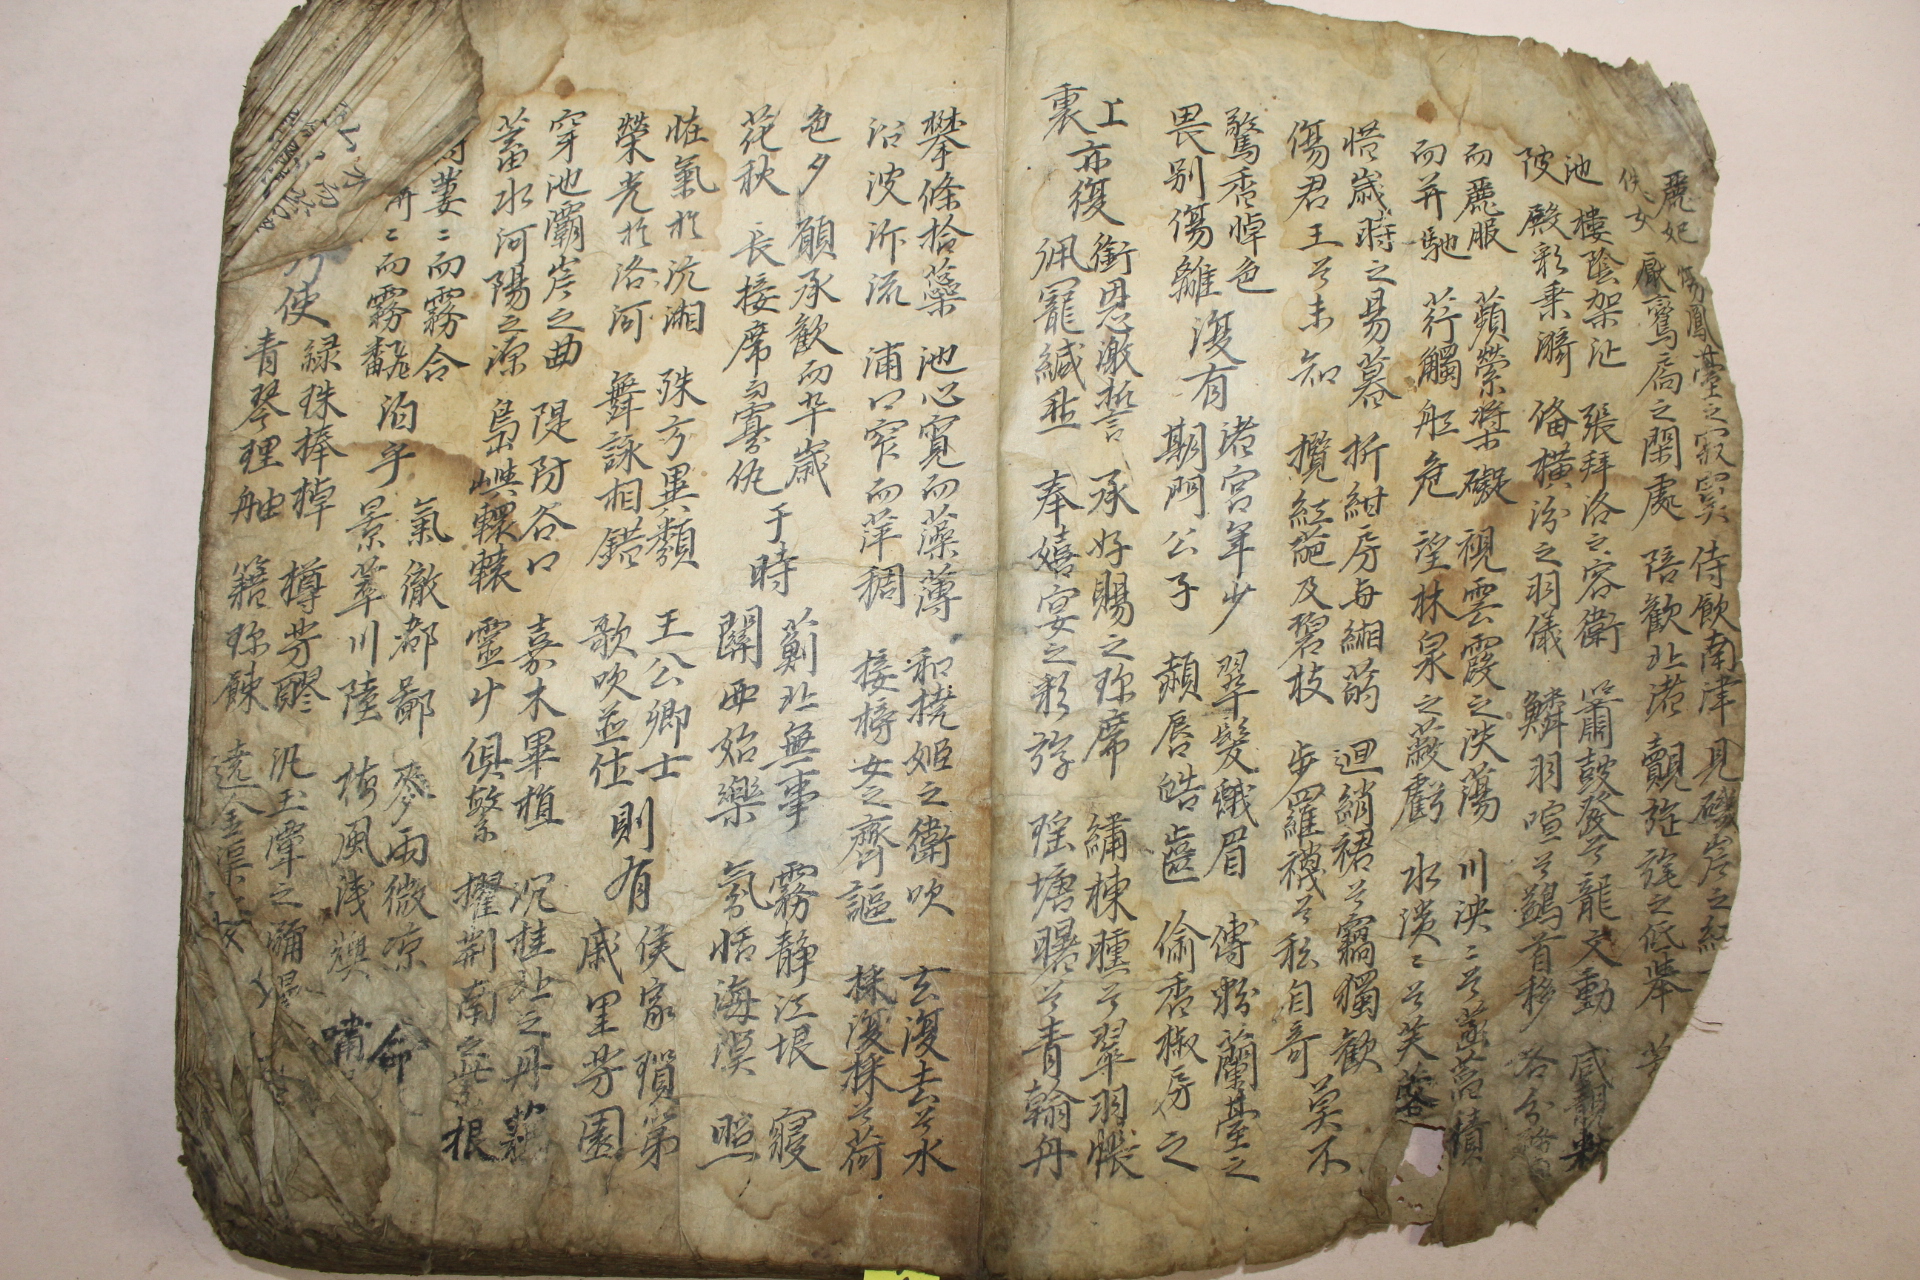 麗妃 傷鳳臺之寂寞 侍飲南津 見磯岸之紅
佚女 厭鸞扃之閑處 陪歡北渚 覿旌旄之低擧
池 樓陰架沚 張拜洛之容衛 簫鼓發兮龍文動 咸靚
陂 殿彩乘漪 俻橫汾之羽儀 鱗羽喧兮鷁首移 各分
而麗服 蘋縈槳礙 視雲霞之泆蕩 川泱ミ兮菡萏積
而并馳 荇觸船危 望林泉之蔽虧 水濙ミ兮芙蓉
惜歲時之易暮 折紺房与緗菂 迴綃裙兮竊獨歡 莫不
傷君王兮未知 攬紅葩及碧枝 步羅襪兮私自奇
驚香悼色 渚宮年少 翠髮蛾眉 傅粉蘭臺之
畏別傷離 復有 期門公子 頳唇皓齒 偷香椒房之
上 銜恩激誓 承好賜之珍席 繡棟曛兮翠羽帳
裏 亦復 佩寵緘愁 奉嬉宴之彩斿 瑤塘曙兮青翰舟
攀條拾蘂 池心寬而藻薄 和橈姬之衛吹 去復去兮水
沿波泝流 浦口窄而萍稠 接榜女之齊謳 採復採兮荷
色夕 願承歡而卒歲 薊北無事 霧靜江垠 寢
花秋 長接席而寡仇 于時 關西始樂 氛恬海漠 照
怪氣於沅湘 殊方異類 王公卿士 侯家瑣第
榮光於洛河 舞詠相錯 歌吹並作 則有 戚里芳園
穿池灞岸之曲 隄防谷口 嘉木畢植 沉桂北之丹藕
蓄水河陽之源 島嶼轘轅 靈草俱繁 擢荊南之紫根
萋ミ而霧合 氣徹都鄙 麥雨微凉 命
冉ミ而霧翻 洎乎 景華川陸 梅風淺燠 嘯
使 綠珠捧棹 樽芳醪 汎玉潭之
青琴理舳 籍珍餗 遶金渠